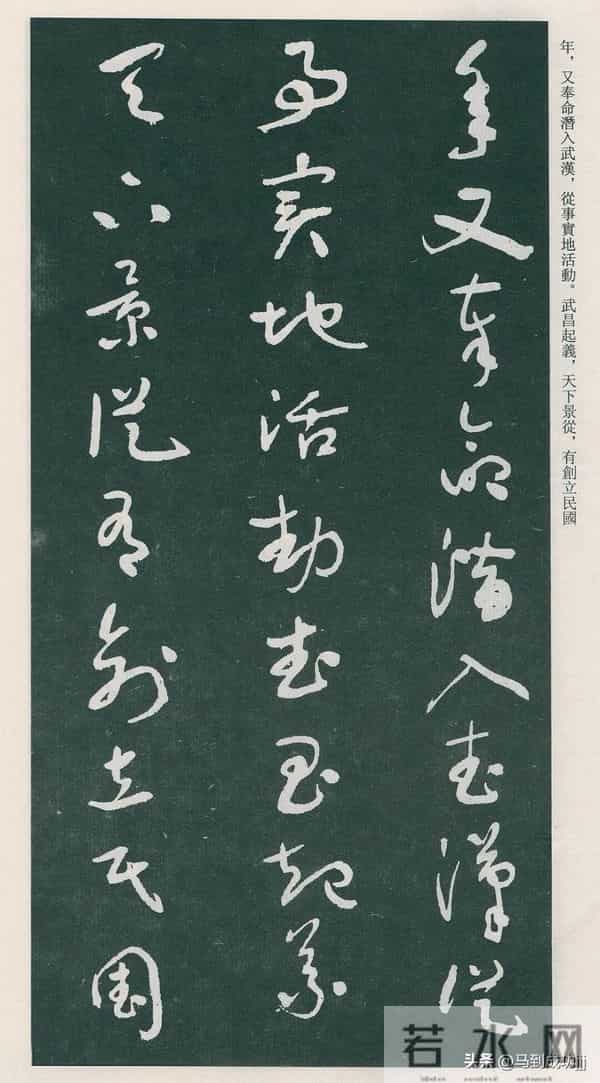 年,又奉命潛入武漢,從事實地活動。武昌起義,天下景從,有創立民國
年又奉命潛入武漢從
事實地活動武昌起義
天下景從有創立民國
若水网
头条 @马到成功jjj